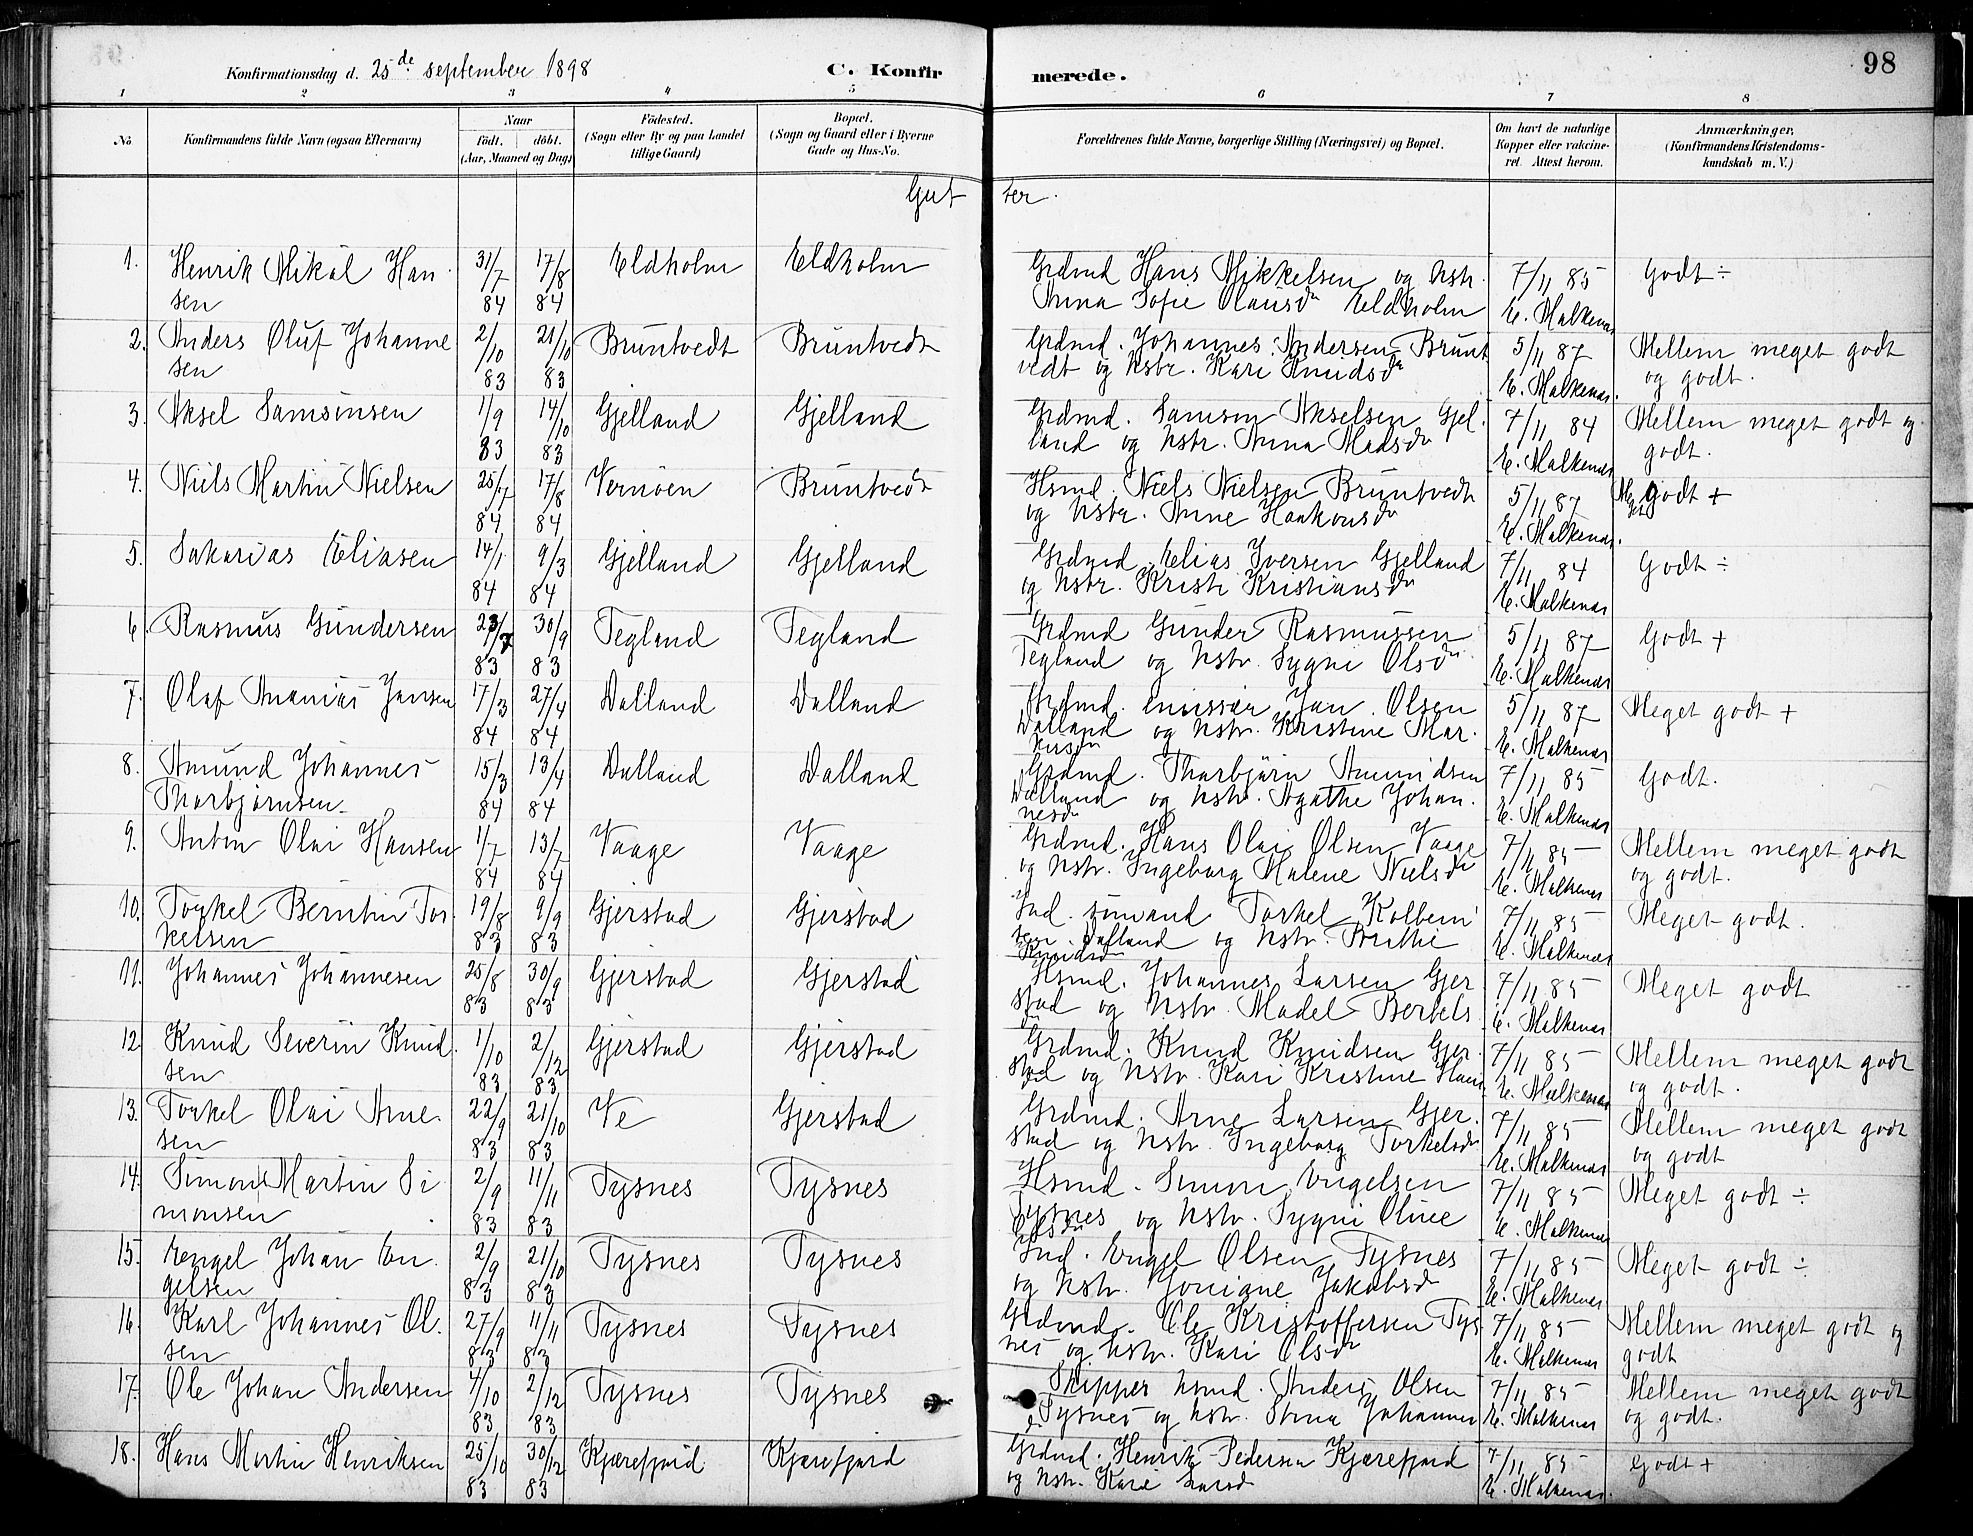 98
Konfirmationsdag d. 25de september 1898 C. Konfir merede.
1 2 3 4 5 6 7 8
No Konfirmandens fulde Navn (ogsaa Efternavn) Naar födt. döbt. (Aar, Maaned og Dag) Födested. (Sogn eller By og paa Landet tillige Gaard) Bopæl. (Sogn og Gaard eller i Byerne Gade og Hus-No. Forældrenes fulde Navne, borgerlige Stilling (Næringsvei) og Bopæl. Om havt de naturlige Kopper eller vakcineret. Attest herom. Anmærkninger. (Konfirmandens Kristendomskundskab m. V.)
Gut ter.
1. Henrik Mikal Han 31/7 17/8 Eldholm Eldholm Grdmd Hans Mikkelsen og hstr. 7/11 85 Godt ÷
sen 84 84 Anna Sofie Olausdr Eldholm E. Malkenæs
2. Anders Oluf Johanne 2/10 21/10 Bruntvedt Bruntvedt Grdmd. Johannes Andersen Brunt 5/11 87 Mellem meget godt
sen 83 83 vedt og hstr. Kari Knudsdr E. Malkenæs. og godt.
3. Aksel Samsonsen 1/9 14/10 Gjelland Gjelland Grdmd. Samson Akselsen Gjel. 7/11 84 Mellem meget godt og
83 83 land og hstr. Anna Madsdr E. Malkenæs godt.
4. Niels Martin Nielsen 25/7 17/8 Vernøen Bruntvedt Hsmd. Niels Nielsen Bruntvedt 5/11 87 Meget godt +
84 84 og hstr. Anne Haakonsdr E. Malkenæs.
5. Sakarias Eliasen 14/1 9/3 Gjelland Gjelland Grdmd. Elias Iversen Gjelland 7/11 84 Godt ÷
84 84 og hstr. Kristi Kristiansdr E. Malkenæs
6. Rasmus Gundersen 23/7 30/9 Tegland Tegland Grdmd Gunder Rasmussen 5/11 87 Godt +
83 83 Tegland og hstr. Sygni Olsdr E. Malkenæs
7. Olaf Ananias Jansen 17/3 27/4 Dalland Dalland Grdmd. emissær Jan Olsen 5/11 87 Meget godt +
84 84 Dalland og hstr. Kristine Mar. E. Malkenæs
kusdr
8. Amund Johannes 15/3 13/4 Dalland Dalland Grdmd. Thorbjørn Amundsen 7/11 85 Godt.
Thorbjørnsen 84 84 Dalland og hstr. Agathe Johan. E. Malkenæs
nesdr
9. Anton Olai Hansen 1/7 13/7 Vaage Vaage Grdmd. Hans Olai Olsen Vaage 7/11 85 Mellem meget godt
84 84 og hstr. Ingeborg Malene Nielsdr E. Malkenæs og godt.
10. Torkel Berntin Tor 19/8 9/9 Gjerstad Gjerstad Ind. sømand Torkel Kolbein 7/11 85 Meget godt.
kelsen 83 83 sen Dalland og hstr. Brithe E. Malkenæs
Knudsdr
11. Johannes Johannesen 25/8 30/9 Gjerstad Gjerstad Hsmd. Johannes Larsen Gjer 7/11 85 Meget godt
83 83 stad og hstr. Madel Bertels E. Malkenæs
dr
12. Knud Severin Knud. 1/10 2/12 Gjerstad Gjerstad Grdmd. Knud Knudsen Gjer. 7/11 85 Mellem meget godt
sen 83 83 stad og hstr. Kari Kristine Hans E. Malkenæs og godt.
13. Torkel Olai Arne. 22/9 21/10 Ve Gjerstad Grdmd. Arne Larsen Gjer. 7/11 85 Mellem meget godt
sen 83 83 stad og hstr. Ingeborg Torkelsdr E. Malkenæs og godt
14. Simon Martin Si 2/9 11/11 Tysnes Tysnes Hsmd. Simon Engelsen 7/11 85 Meget godt ÷
monsen 83 83 Tysnes og hstr. Sygni Oline E. Malkenæs
Olsdr
15. Engel Johan En. 2/9 21/10 Tysnes Tysnes Ind. Engel Olsen Tysnes 7/11 85 Meget godt ÷
gelsen 83 83 og hstr. Jonigne Jakobsdr E. Malkenæs
16. Karl Johannes Ol. 27/9 11/11 Tysnes Tysnes Grdmd. Ole Kristoffersen Tys 7/11 85 Mellem meget godt og
sen 83 83 nes og hstr. Kari Olsdr E. Malkenæs godt
17. Ole Johan Andersen 4/10 2/12 Tysnes Tysnes Skipper hsmd. Anders Olsen 7/11 85 Mellem meget godt
83 83 Tysnes og hstr. Stina Johannes E. Malkenæs og godt.
18. Hans Martin Henriksen 25/10 30/12 Kjærefjord Kjærefjord Grdmd. Henrik Pedersen Kjærefjord 7/11 85 Godt +
83 83 og hstr. Kari Larsd E. Malkenæs.